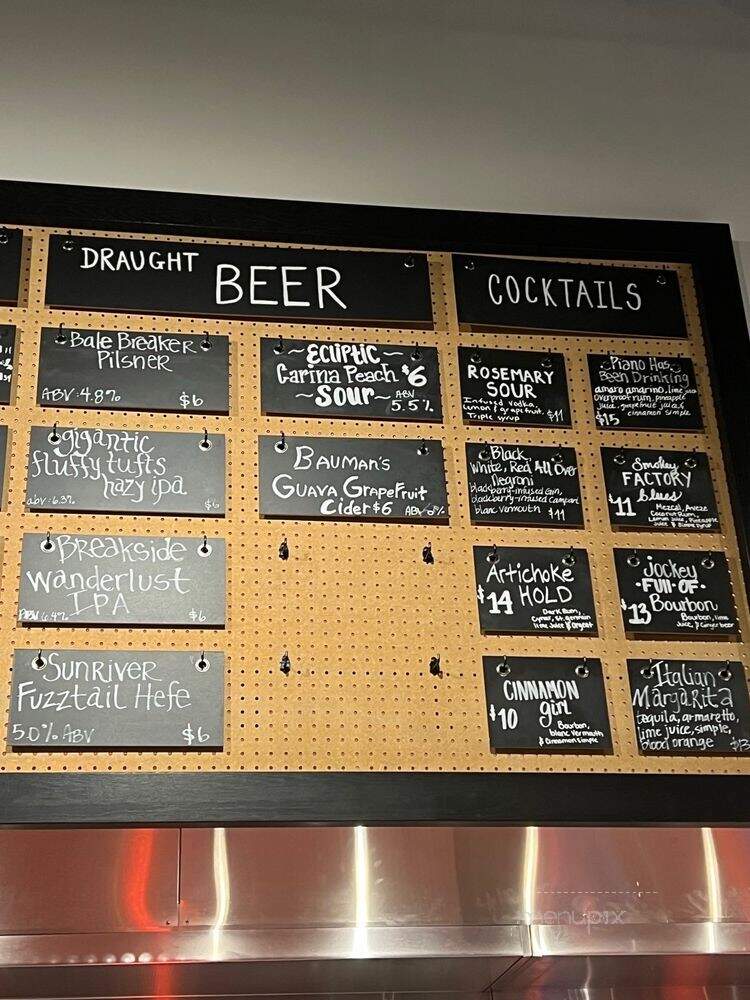 DRAUGHT BEER
Bale Breaker
Pilsner
ABV: 4.8% $6
gigantic
fluffy tufts
hazy ipa
abv: 6.3% $6
Breakside
Wanderlust
IPA
ABV: 6.4% $6
SUNRIVER
FUZZTAIL HEFE
5.0% ABV $6
~ECLIPTIC~
Carina Peach $6
~SOUR~ ABV
5.5%
BAUMAN'S
GUAVA GRAPEFRUIT
Cider $6 ABV
COCKTAILS
ROSEMARY
SOUR
Infused vodka,
lemon & grapefruit,
Triple syrup $11
Black,
White, Red All Over
Negroni
blackberry-infused Gin,
blackberry-infused campari
blanc vermouth $11
Artichoke
$14 HOLD
Dark Rum,
Cynar, St. germain
lime juice & Orgeat
CINNAMON
girl
$10
Bourbon,
blanc vermouth
& Cinnamon simple
Piano Has
Been Drinking
amaro amarino, lime juice
overproof rum, pineapple
juice, grapefruit juice &
$15 cinnamon simple
Smokey
FACTORY
$11 blues
Mezcal, Aveze
Coconut Rum,
Lemon Juice, Pineapple
Juice & Simple Syrup
Jockey
·FULL·OF·
$13 Bourbon
Bourbon, lime
Juice, & Ginger beer
Italian
MARGARITA
tequila, armaretto,
lime juice, simple,
blood orange $13
menupix